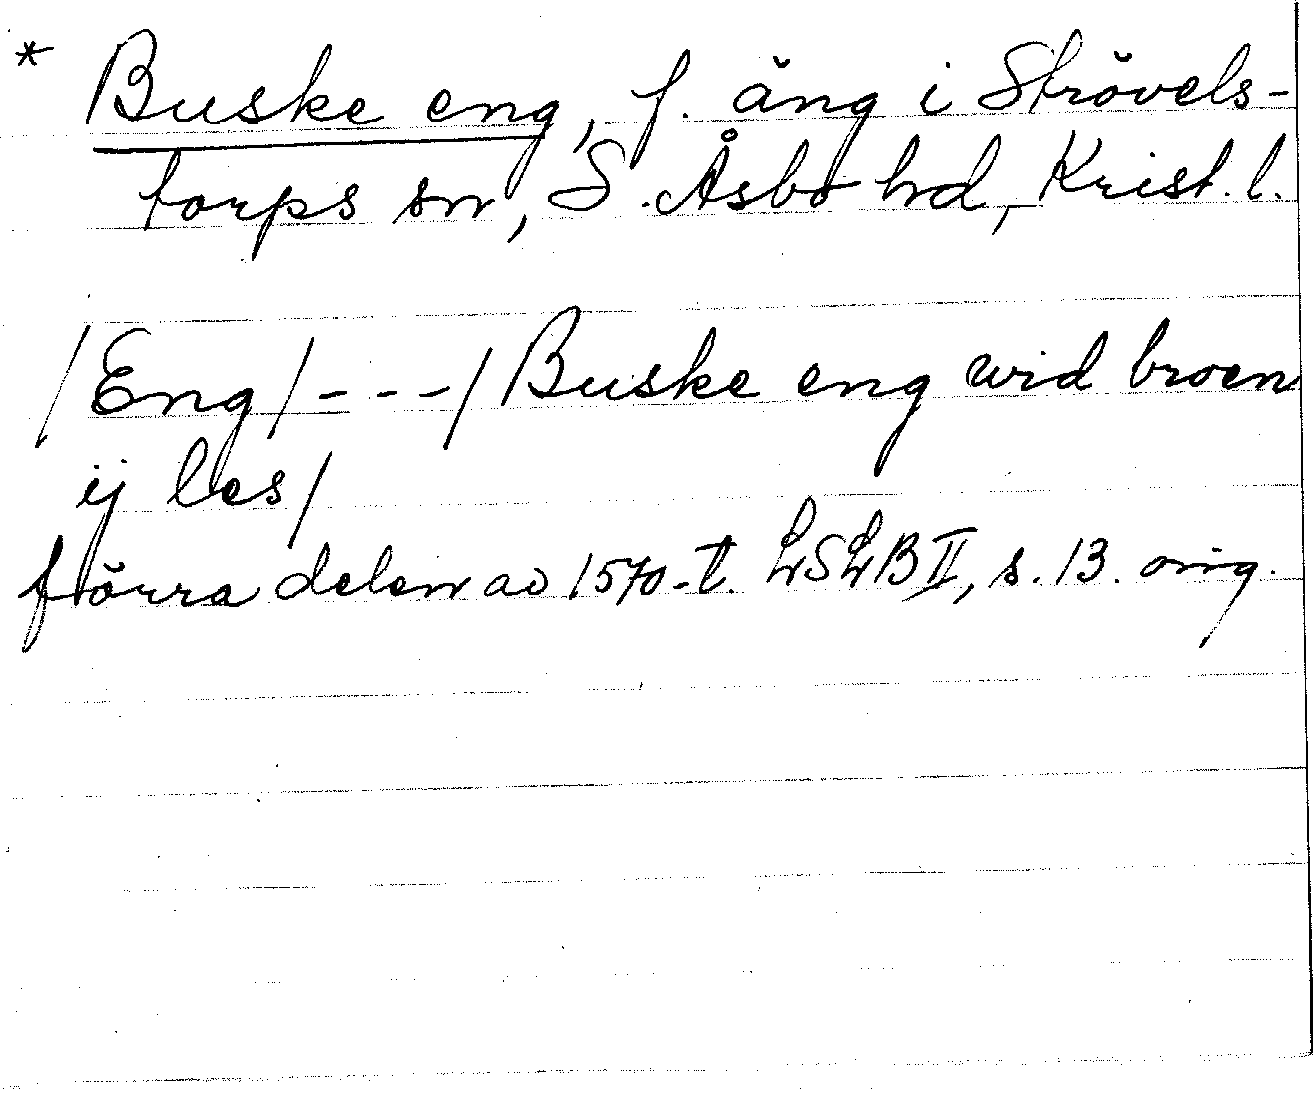 * Buske eng, f. äng i Strövels-
torps sn, S. Åsbo hd, Krist. l.
/Eng/---/Buske eng wid broen
ij les/
förra delen av 1570-t. LSLB II, s. 13. orig.